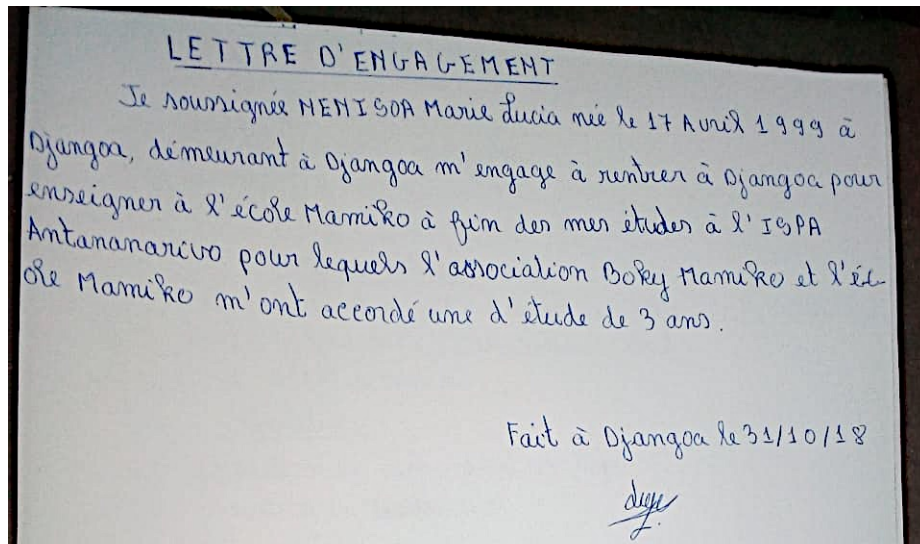 LETTRE D'ENGAGEMENT
Je soussignée NENISOA Marie Lucia née le 17 Avril 1999 à
Djangoa, démeurant à Djangoa m'engage à rentrer à Djangoa pour
enseigner à l'école Mamiko à fin des mes études à l'ISPA
Antananarivo pour lequels l'association Boky Mamiko et l'éc-
ole Mamiko m'ont accordé une d'étude de 3 ans.
Fait à Djangoa le 31/10/18